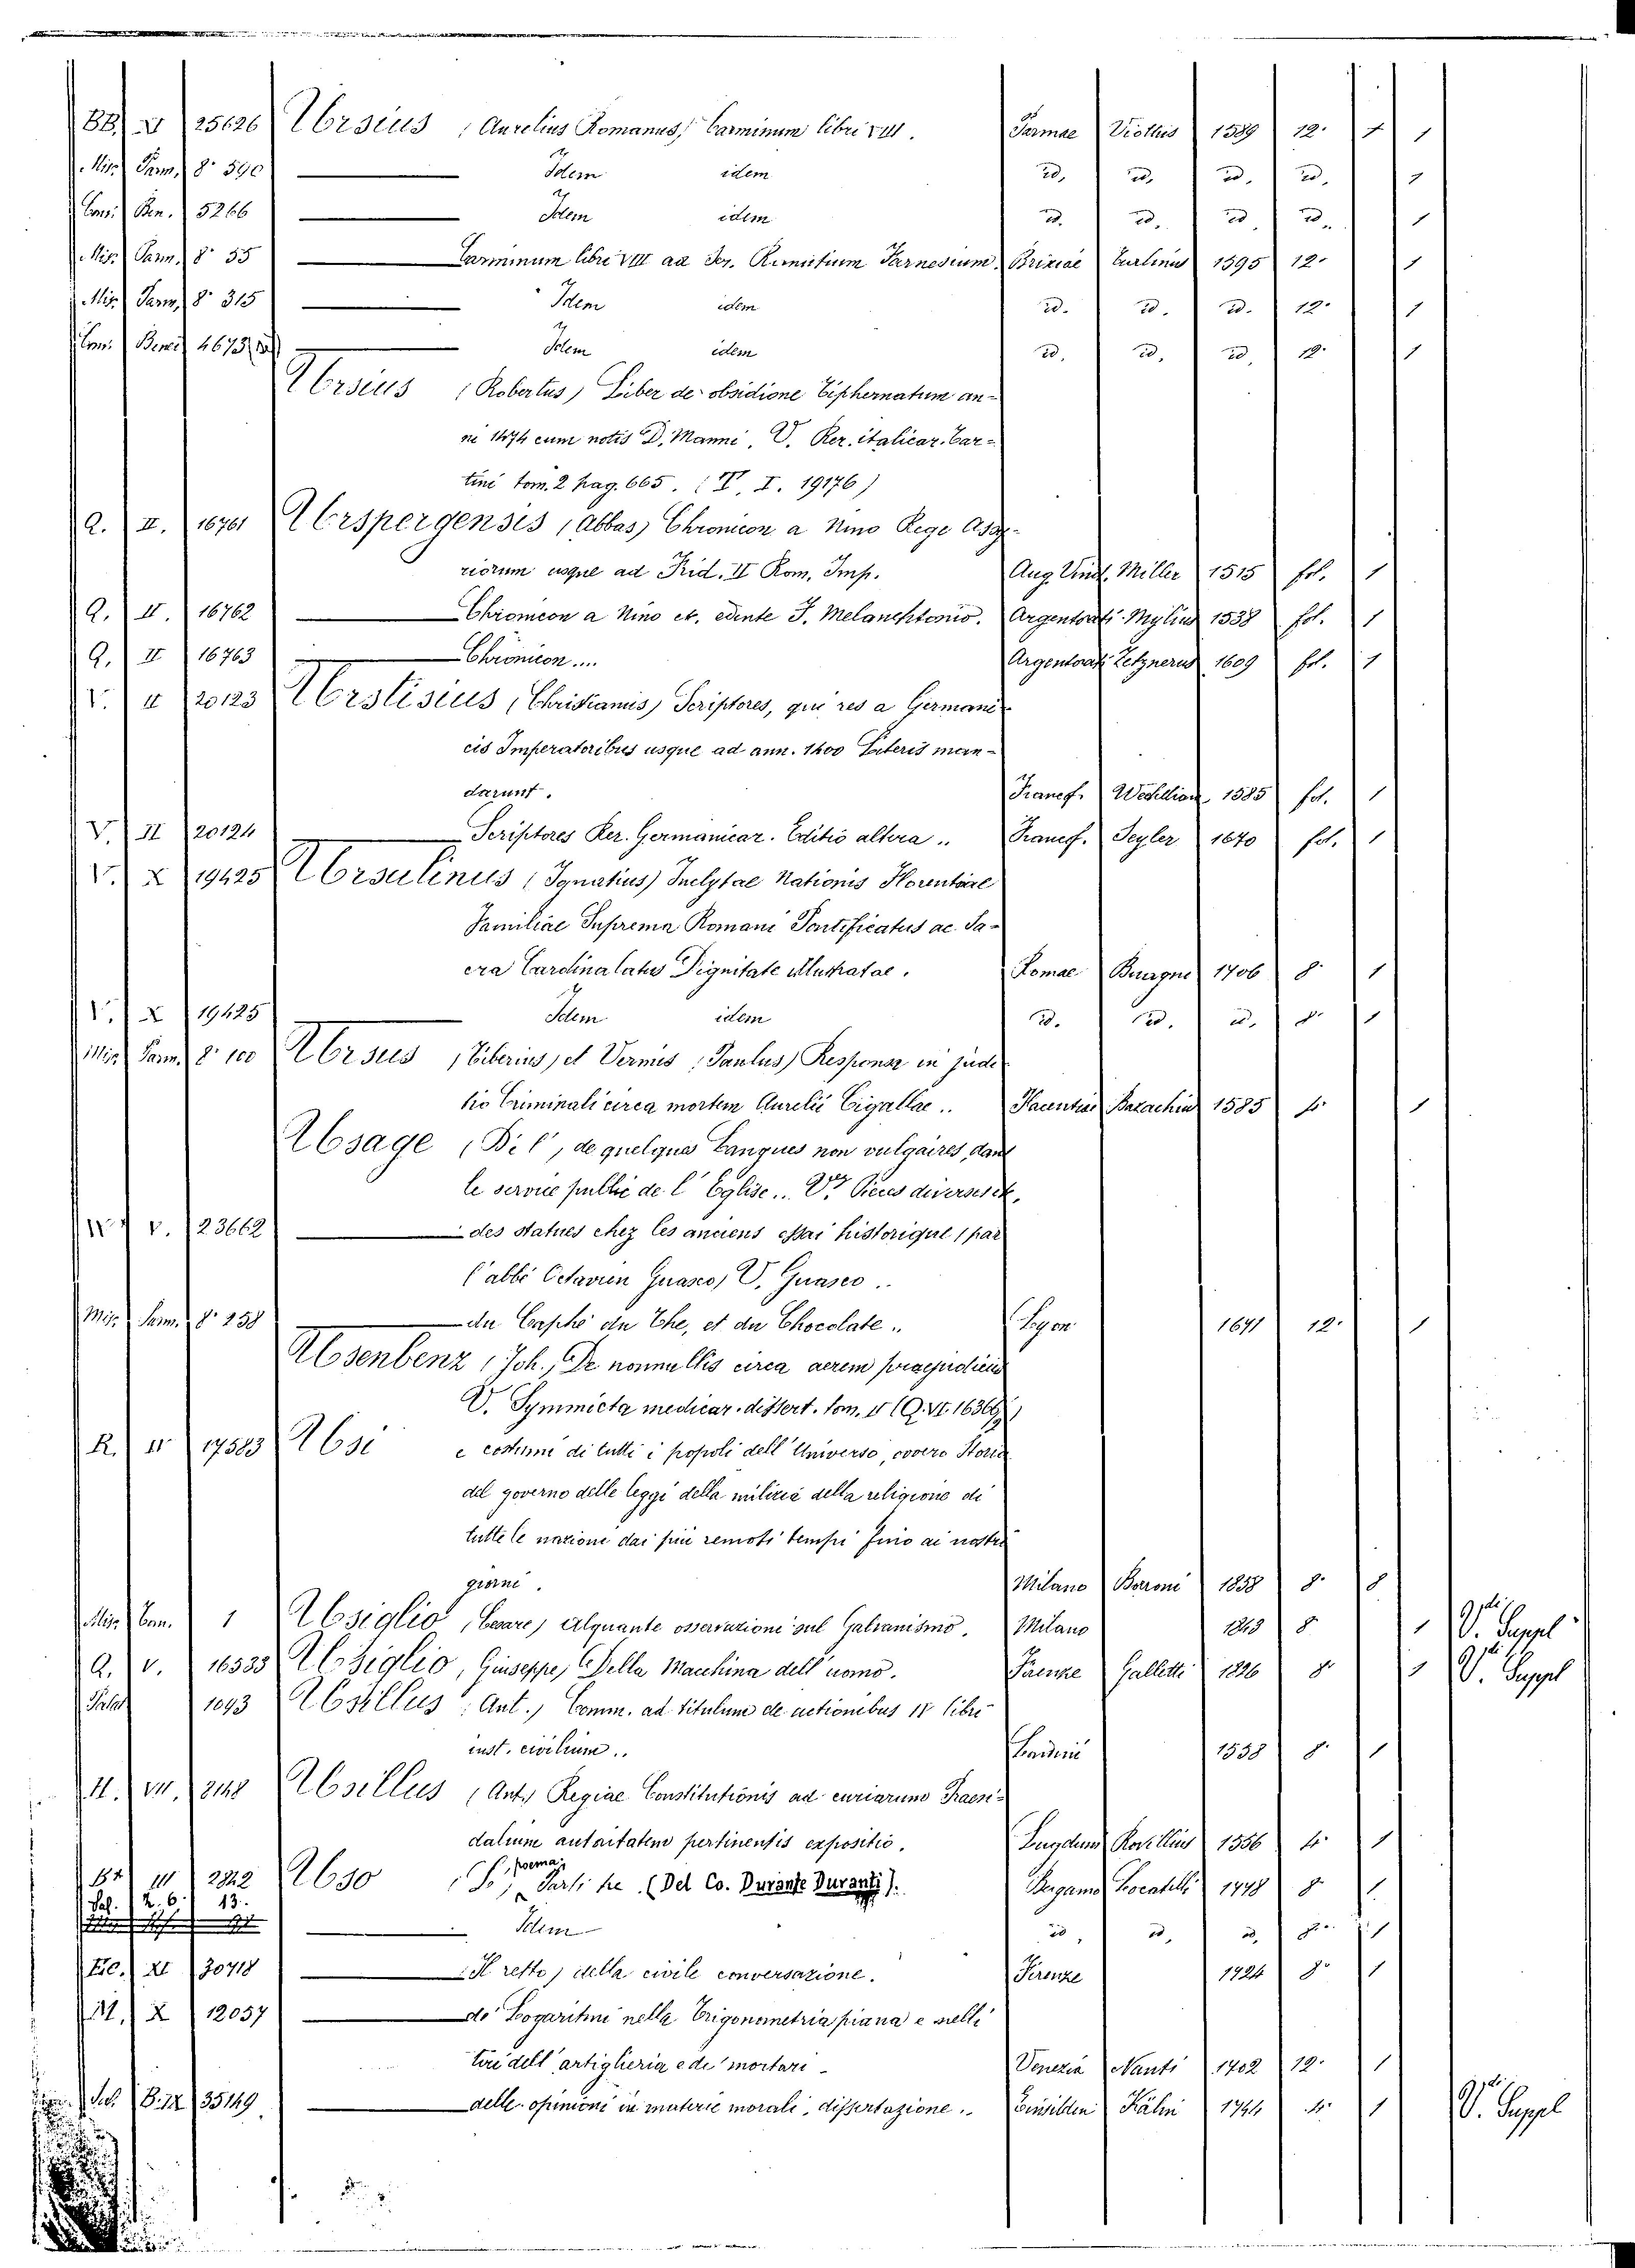 BB. XI 25626 Ursius (Aurelius Romanus) Carminum libri VIII. Parmae Viottus 1589 12° 1 1
Misc. Parm. 8° 590 Idem idem id. id. id. id. 1
Cons. Ben. 5266 Idem idem id. id. id. id. 1
Misc. Parm. 8° 55 Carminum libri VIII ad Ser. Farnesium. Brixiae 1595 12° 1
Misc. Parm. 8° 315 Idem idem id. id. id. 12° 1
4673 Idem idem id. id. id. 12° 1
Ursius (Robertus) Liber de obsidione Tiphernatum an-
ni 1474 cum notis D. Manni. V. Rer. italicar. Tar-
tini tom. 2 pag. 665. (T. I. 19176)
Q. II. 16761 Urspergensis (Abbas) Chronicon a Nino Rege Assy-
riorum usque ad Frid. II Rom. Imp. Aug. Vind. Miller 1515 fol. 1
Q. II. 16762 Chronicon a Nino etc. edente F. Melanchtonio. Argentorati Mylius 1538 fol. 1
Q. II 16763 Chronicon.... Argentorati Zetznerus 1609 fol. 1
V. II 20123 Urstisius (Christianus) Scriptores, qui res a Germani-
cis Imperatoribus usque ad ann. 1400 Literis man-
darunt. Francf. 1585 fol. 1
V. II 20124 Scriptores Rer. Germanicar. Editio altera.. Francf. Seyler 1670 fol. 1
V. X 19425 Ursulinus (Ignatius) Inclytae Nationis Florentinae
Familiae Suprema Romani Pontificatus ac Sa-
cra Cardinalatus Dignitate illustratae. Romae 1706 8° 1
V. X 19425 Idem idem id. id. id. 8° 1
Misc. Parm. 8° 100 Ursus (Tiberius) et Vermis (Paulus) Responsa in judi-
tio Criminali circa mortem Aurelii Cigallae.. Placentiae Bazachius 1585 4° 1
Usage (De l') de quelques Langues non vulgaires, dans
le service public de l'Eglise... V. Pieces diverses etc.
V. 23662 des statues chez les anciens essai historique (par
l'abbé Octavien Guasco) V. Guasco..
Misc. Parm. 8° 258 du Caphé du The, et du Chocolate.. Lyon 1671 12° 1
Usenbenz (Joh.) De nonnullis circa aerem praejudiciis
V. Symmicta medicar. dissert. tom. II (Q. VI. 16366)
R. II 17583 Usi e costumi di tutti i popoli dell'Universo, ovvero Storia
del governo delle leggi della milizia della religione di
tutte le nazioni dai più remoti tempi fino ai nostri
giorni. Milano Borroni 1858 8° 8
Misc. Ben. 1 Usiglio (Cesare) Alquante osservazioni sul Galvanismo. Milano 1843 8° 1 V. Suppl
Q. V. 16533 Usiglio (Giuseppe) Della Macchina dell'uomo. Firenze Galletti 1826 8° 1 V. Suppl
Palat 1093 Usillus (Ant.) Comm. ad titulum de actionibus IV libri
inst. civilium.. 1538 8° 1
H. VII. 8148 Usillus (Ant.) Regiae Constitutionis ad curiarum Praesi-
dalium autoritatem pertinentis expositio. Lugduni Rovillius 1556 4° 1
III 2822 Uso (Lo), poema, Parti tre. (Del Co. Durante Duranti). Bergamo Locatelli 1778 8° 1
Pal. 2. 6. 13. Idem id. id. id. 8° 1
XI 30718 (Il retto) della civile conversazione. Firenze 1724 8° 1
M. X 12057 de' Logaritmi nella Trigonometria piana e nelli
tiri dell'artiglieria e de' mortari Venezia Nanti 1702 12° 1
35149 delle opinioni in materie morali, dissertazione.. Einsidlen Kälin 1744 4° 1 V. Suppl